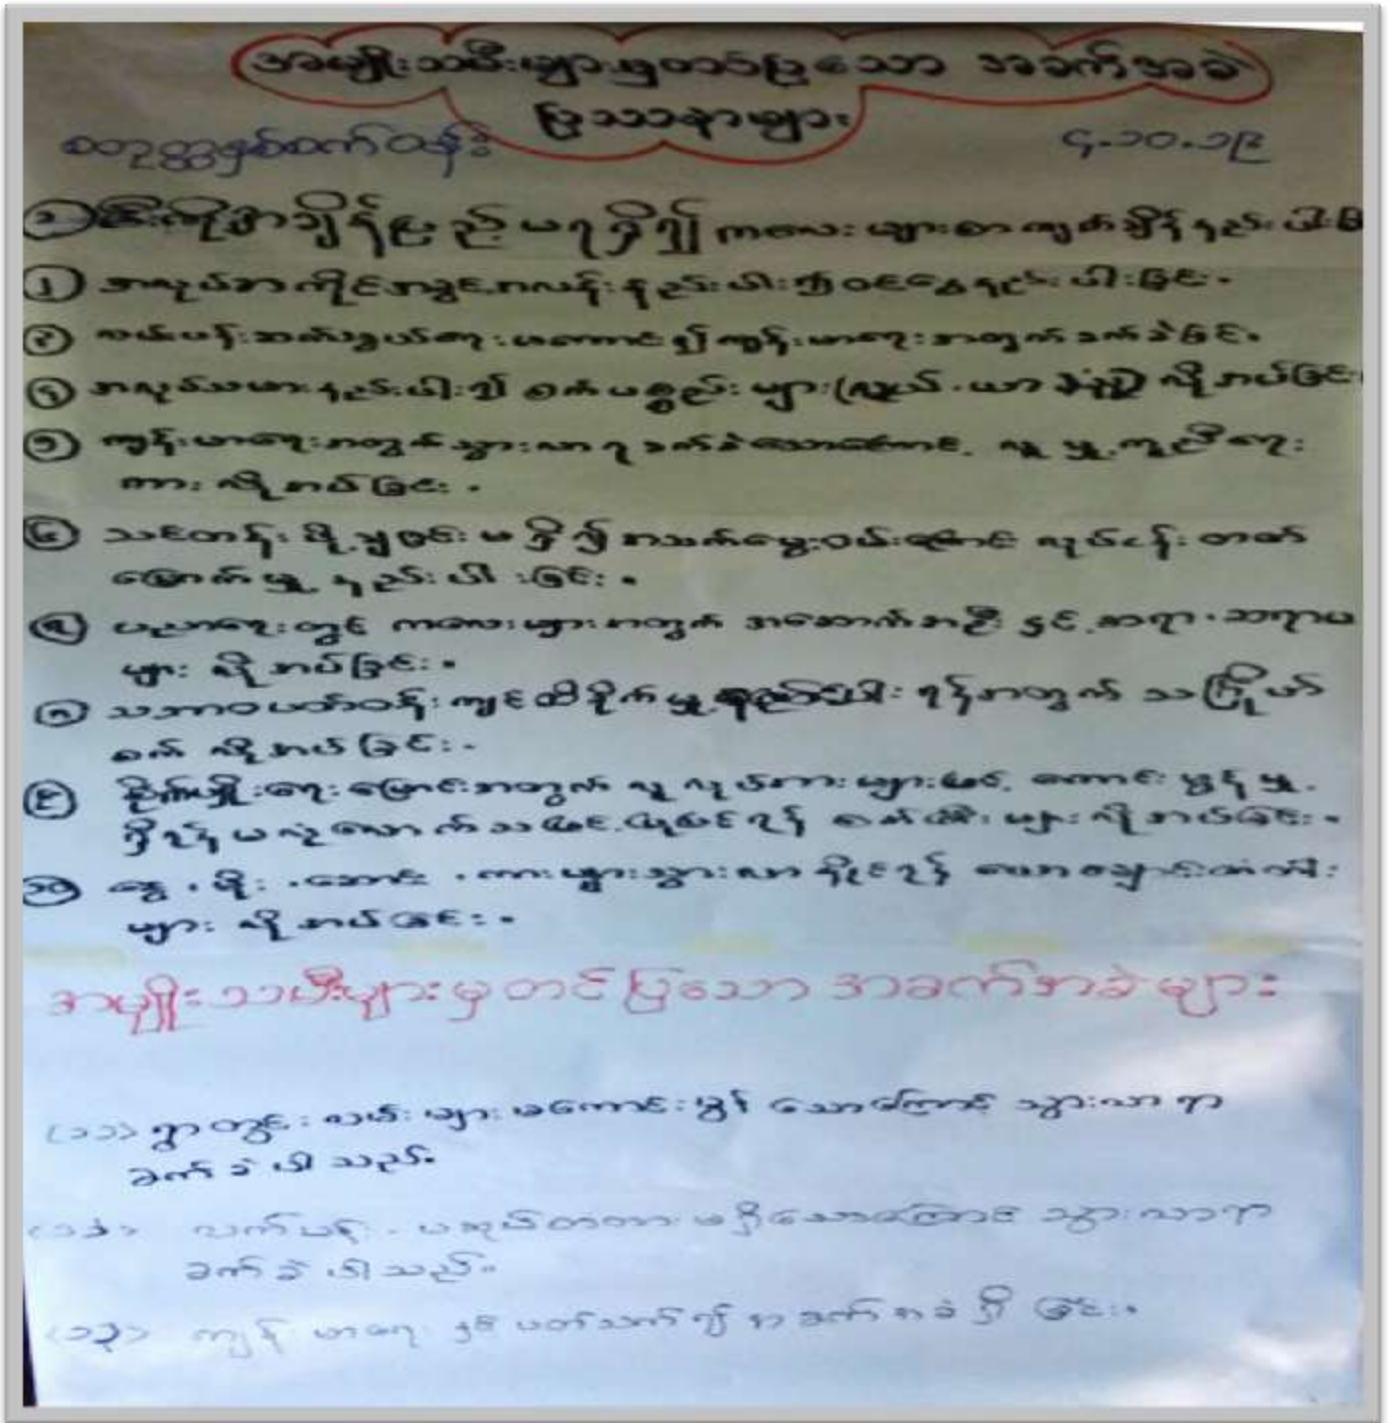 အမျိုးသမီးများမှတင်ပြသော အခက်အခဲ
ပြဿနာများ
၄.၁၀.၁၉
အချိန်ပြည့်မရရှိ၍ ကလေးများစာကျက်ချိန်နည်းပါး
၂ အလုပ်အကိုင်အခွင့်အလန်းနည်းပါး၍ဝင်ငွေနည်းပါးခြင်း။
၃ လမ်းပန်းဆက်သွယ်ရေးမကောင်း၍ကျွန်းမာရေးအတွက်ခက်ခဲခြင်း။
၄ အလုပ်သမားနည်းပါး၍ စက်ပစ္စည်းများ(လူယ်.ယာ လိုအပ်ခြင်း
၅ ကျွန်းမာရေးအတွက်သွားလာရခက်ခဲသောကြောင့် လူမှုကူညီရေး
ကား လိုအပ်ခြင်း။
၆ သင်တန်းပို့ချခြင်းမရှိ၍အသက်မွေးဝမ်းကြောင်း လုပ်ငန်းတတ်
မြောက်မှု နည်းပါးခြင်း။
၇ ပညာရေးတွင် ကလေးများအတွက် အဆောက်အဦး နှင့်ဆရာ.ဆရာမ
များ လိုအပ်ခြင်း။
၈ သဘာဝပတ်ဝန်းကျင်ထိခိုက်မှု ရန်အတွက် သကြိုပ်
စက် လိုအပ်ခြင်း။
၉ စိုက်ပျိုးရေးမြောင်းအတွက် လူလုပ်အားများဖြင့် ကောင်းမွန်မှု
ရှိရန်မလုံလောက်သဖြင့် လိုအပ်ခြင်း။
၁၀ နွေ.မိုး.ဆောင်း.ကားများသွားလာနိုင်ရန် တံတား
များ လိုအပ်ခြင်း။
အမျိုးသမီးများမှတင်ပြသောအခက်အခဲများ
(၁၁) ရွာတွင်းလမ်းများမကောင်းမွန် သောကြောင့် သွားလာရာ
ခက်ခဲပါသည်။
(၁၂) တံတားမရှိသောကြောင့် သွားလာရာ
ခက်ခဲပါသည်။
(၁၃) ကျန်းမာရေး နှင့်ပတ်သက်၍အခက်အခဲရှိခြင်း။